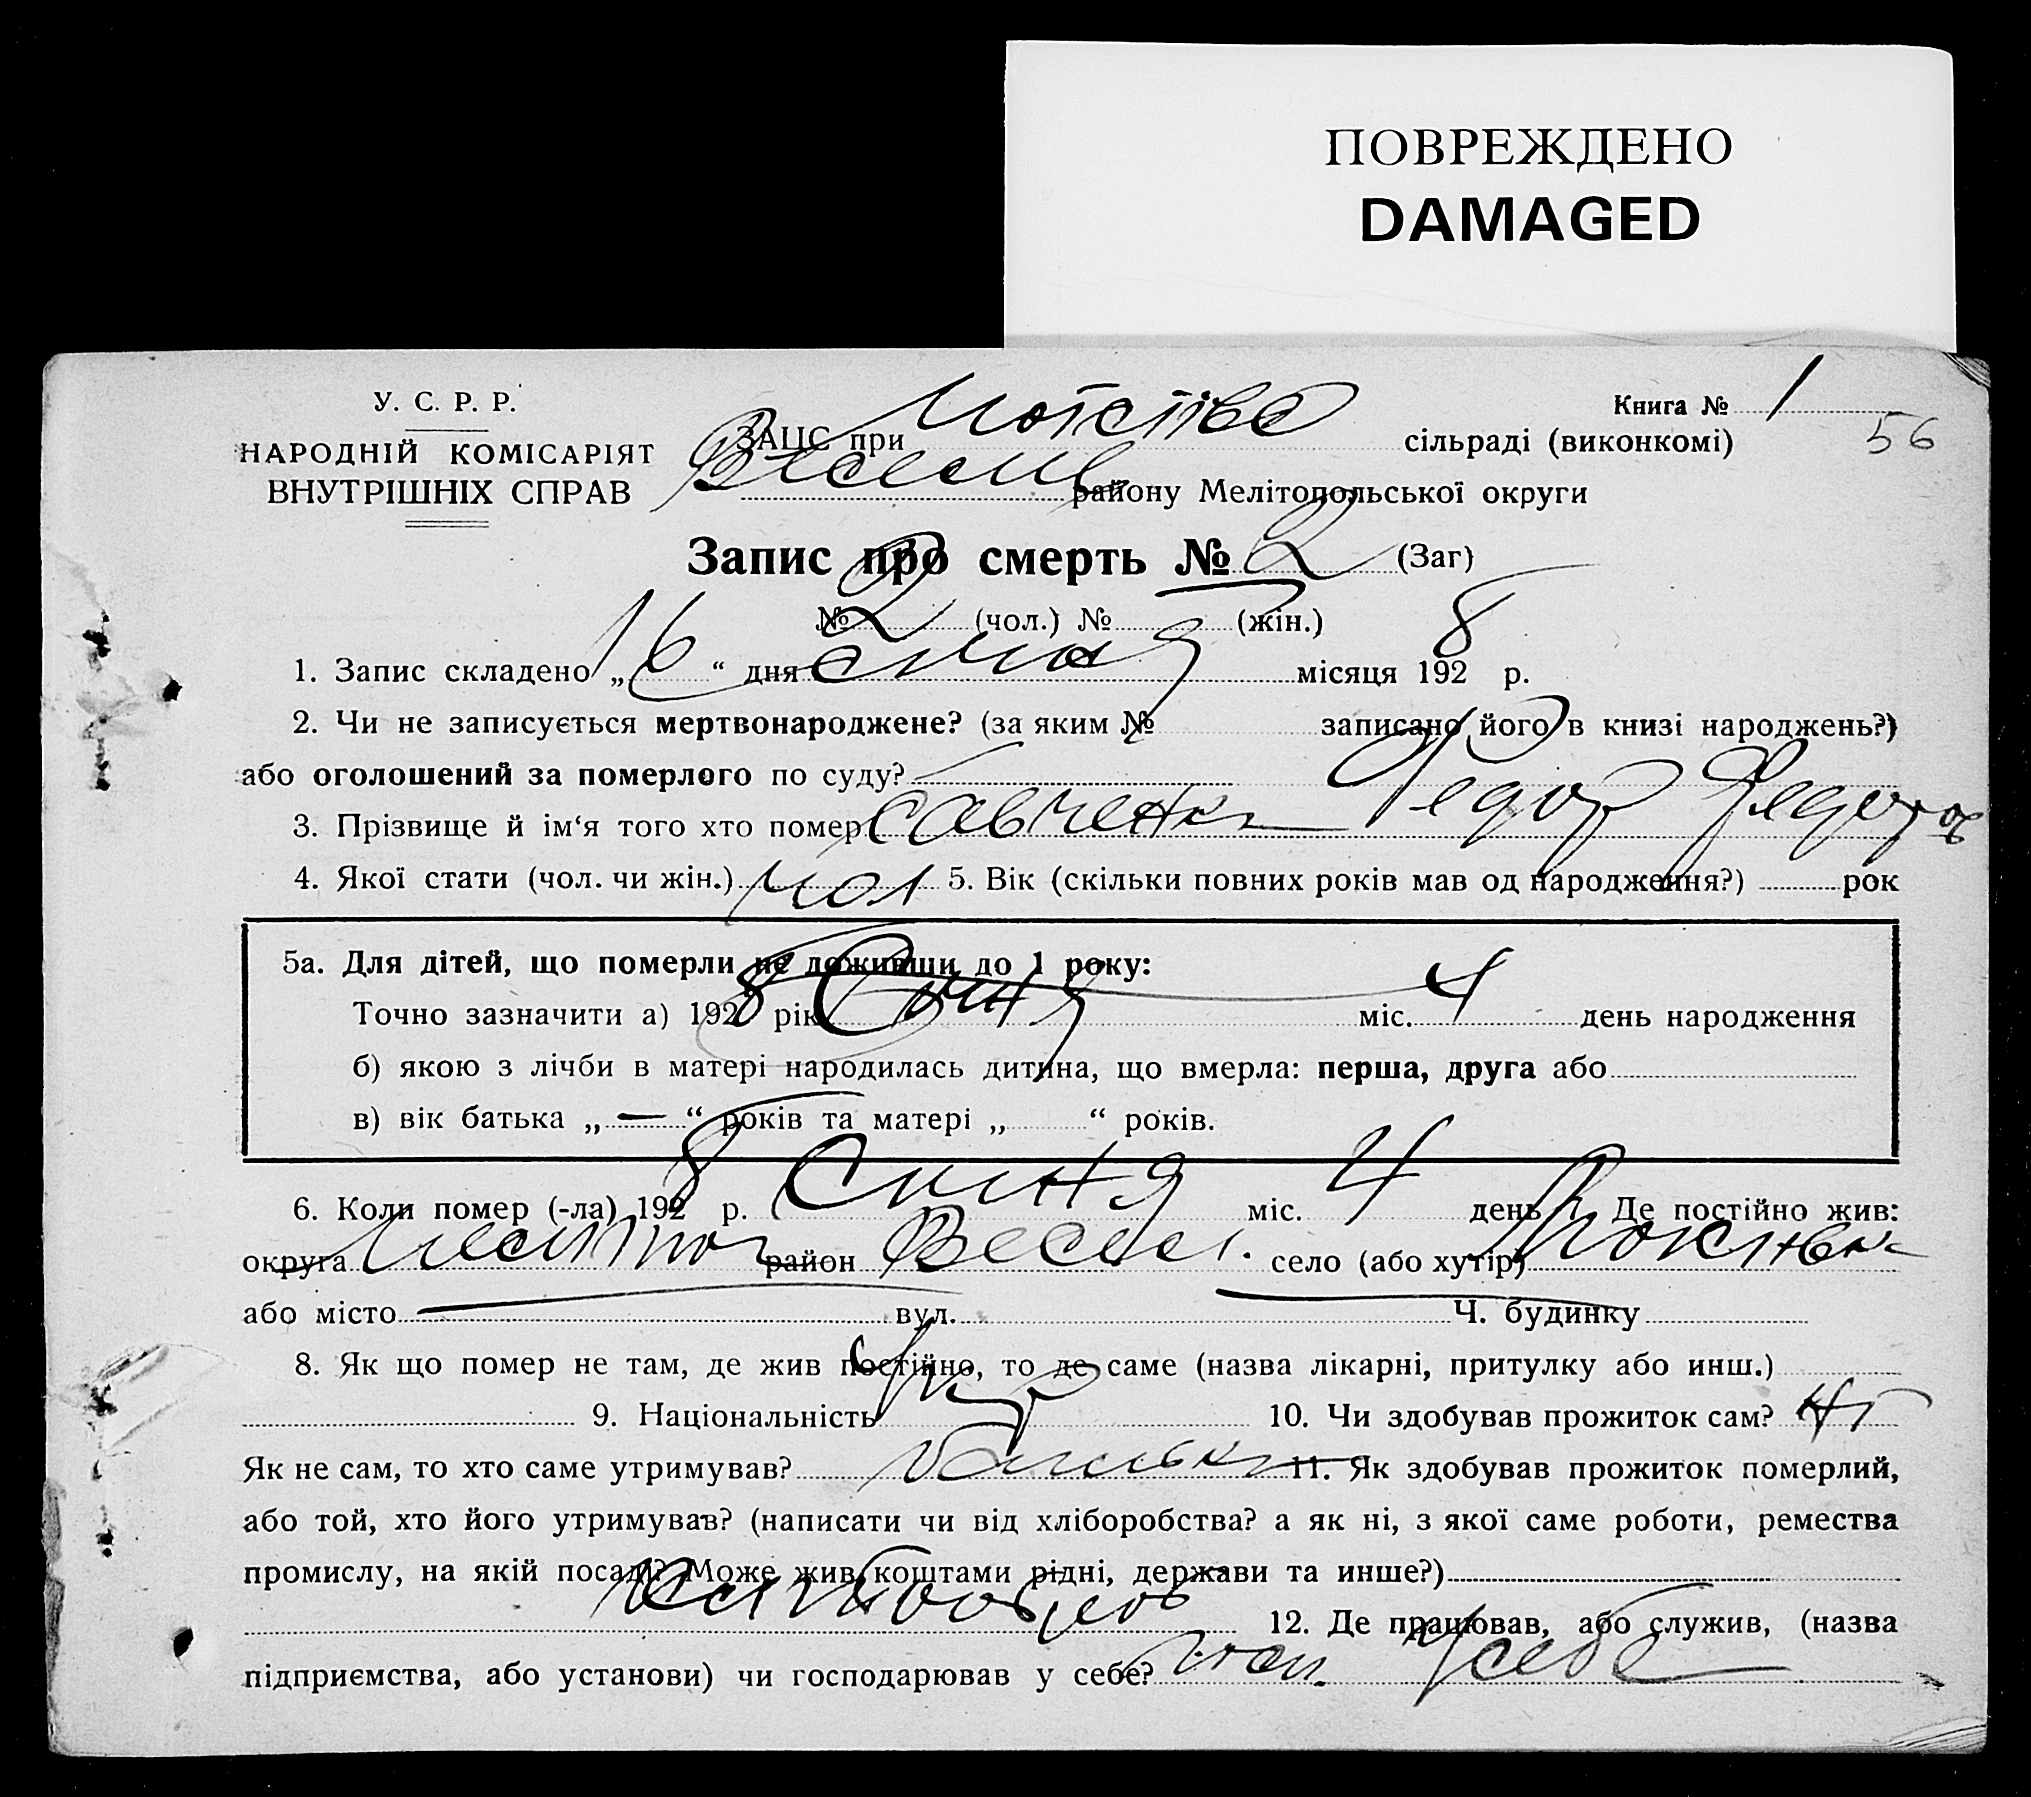 ПОВРЕЖДЕНО
DAMAGED
У. С. Р. Р.
НАРОДНІЙ КОМІСАРІЯТ
ВНУТРІШНІХ СПРАВ
Книга № 1
56
ЗАЦС при сільраді (виконкомі)
Весел району Мелітопольської округи
Запис про смерть № 2 (Заг)
№ 2 (чол.) № (жін.)
1. Запис складено „ 16 “ дня січня місяця 1928 р.
2. Чи не записується мертвонароджене? (за яким № записано його в книзі народжень?)
або оголошений за померлого по суду?
3. Прізвище й ім‘я того хто помер Савченко Федор Федоров
4. Якої стати (чол. чи жін.) чол 5. Вік (скільки повних років мав од народження?) рок
5а. Для дітей, що померли не доживши до 1 року:
Точно зазначити а) 1928 рік Січня міс. 4 день народження
б) якою з лічби в матері народилась дитина, що вмерла: перша, друга або
в) вік батька „ — “ років та матері „ “ років.
6. Коли помер (-ла) 1928 р. Січня міс. 4 день 7. Де постійно жив:
округа Мелітоп район Весел. село (або хутір)
або місто — вул. Ч. будинку
8. Як що помер не там, де жив постійно, то де саме (назва лікарні, притулку або инш.)
9. Національність Укр 10. Чи здобував прожиток сам? ні
Як не сам, то хто саме утримував? батько 11. Як здобував прожиток померлий,
або той, хто його утримував? (написати чи від хліборобства? а як ні, з якої саме роботи, ремества
промислу, на якій посаді? Може жив коштами рідні, держави та инше?)
12. Де працював, або служив, (назва
підприємства, або установи) чи господарював у себе? у себе